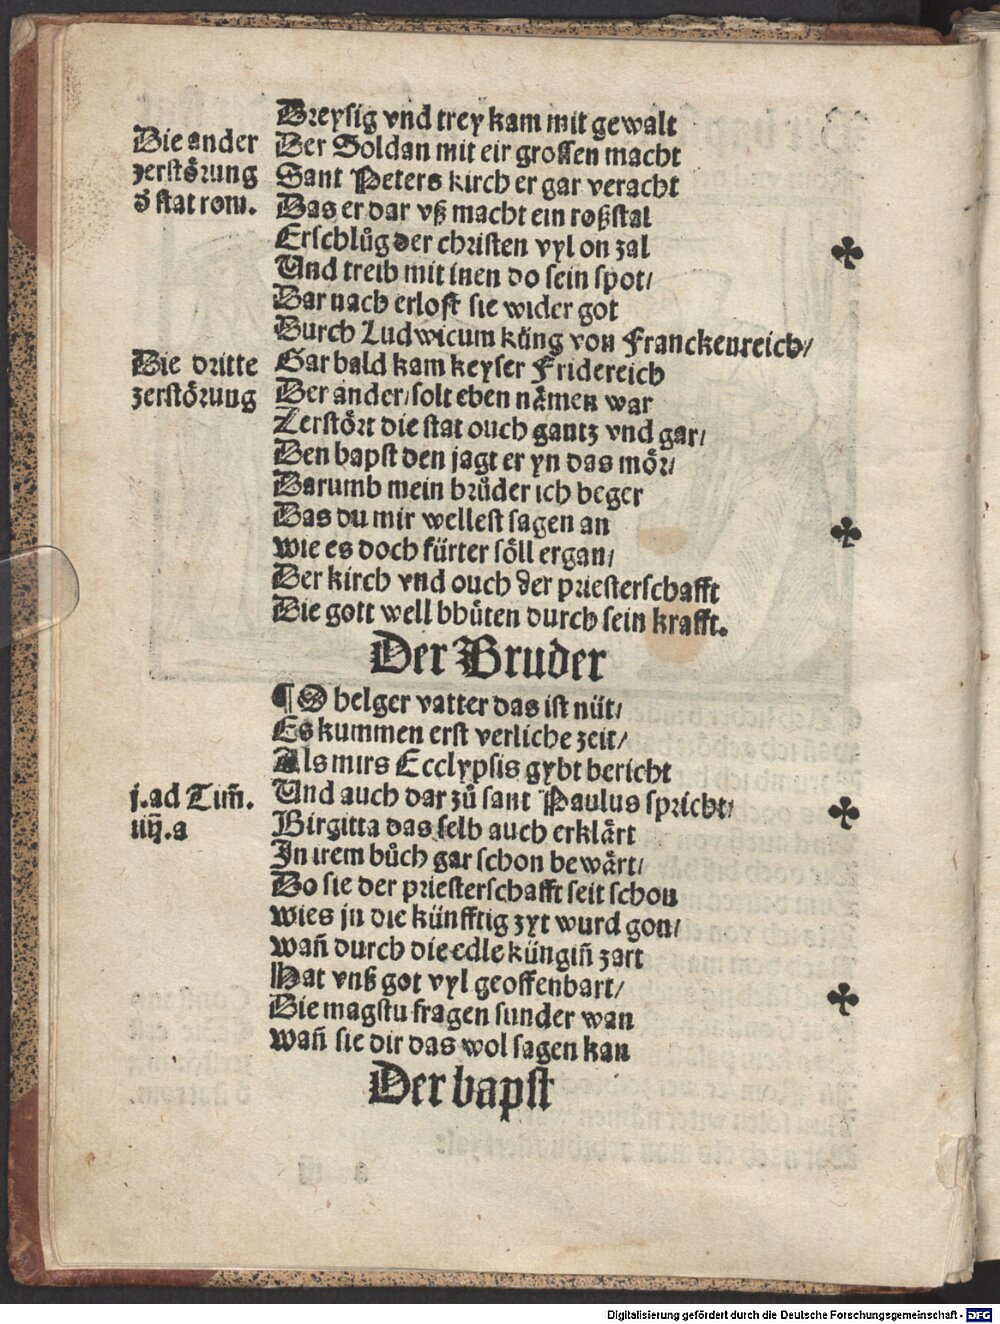 Dreysig vnd trey kam mit gewalt
Die ander
zerstörung
d̄ stat rom.
Der Soldan mit eir grossen macht
Sant Peters kirch er gar veracht
Das er dar vß macht ein roßstal
Erschlůg der christen vyl on zal
Und treib mit inen do sein spot/
Dar nach erlost sie wider got
Durch Ludwicum küng von Franckenreich/
Die dritte
zerstörung
Gar bald kam keyser Fridereich
Der ander/solt eben nämen war
Zerstört die stat ouch gantz vnd gar/
Den bapst den jagt er yn das mör/
Darumb mein brůder ich beger
Das du mir wellest sagen an
wie es doch fürter söll ergan/
Der kirch vnd ouch der priesterschafft
Die gott well bhüten durch sein krafft.
Der Bruder
¶ O helger vatter das ist nüt/
Es kummen erst verliche zeit/
Als mirs Ecclypsis gybt bericht
j.ad Tim̄.
iiij.a
Und auch dar zů sant Paulus spricht/
Birgitta das selb auch erklärt
In irem bůch gar schon bewärt/
Do sie der priesterschafft seit schon
wies jn die künfftig zyt wurd gon/
wañ durch die edle küngiñ zart
Hat vnß got vyl geoffenbart/
Die magstu fragen sunder wan
wañ sie dir das wol sagen kan
Der bapst
Digitalisierung gefördert durch die Deutsche Forschungsgemeinschaft - DFG